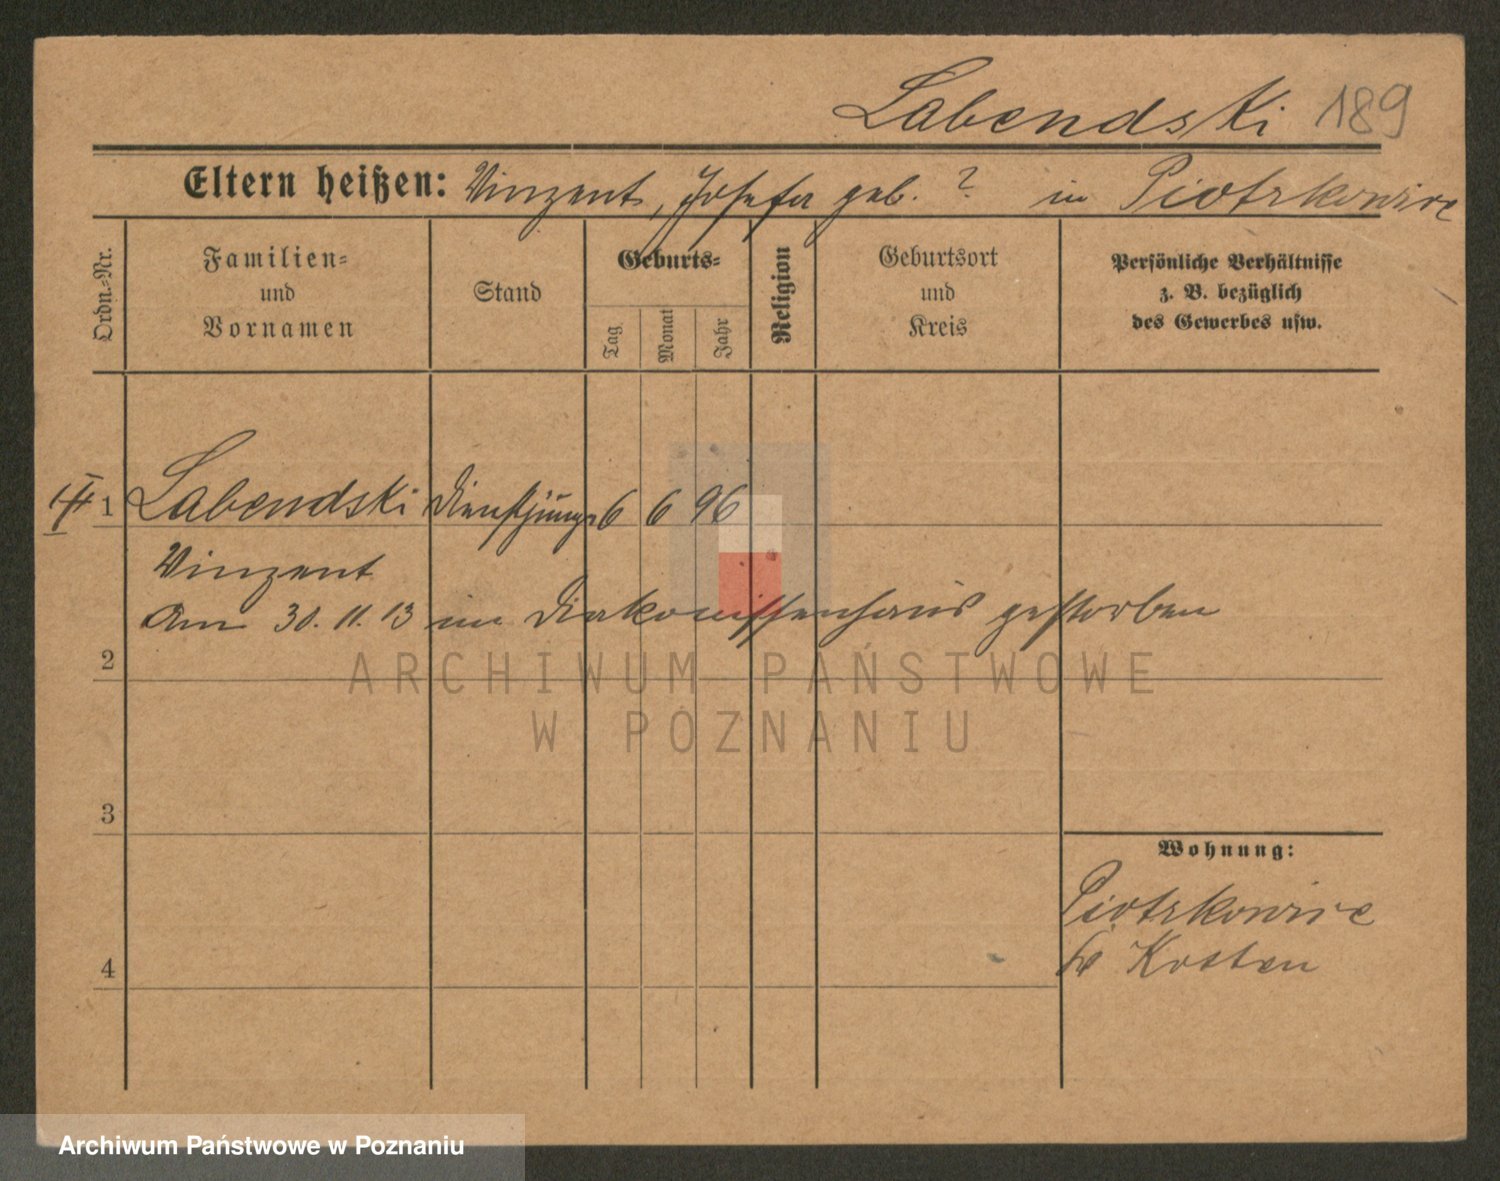 Labendski 189
Eltern heißen: Vinzent, Josefa geb. ? in Piotrkowice
Ordn.-Nr.
Familien-
und
Vornamen
Stand
Geburts-
Tag
Monat
Jahr
Religion
Geburtsort
und
Kreis
Persönliche Verhältnisse
z. B. bezüglich
des Gewerbes usw.
1 Labendski Dienstjunge 6 6 96
Vinzent
Am 30. 11. 13 im Diakonissenhaus gestorben
2
ARCHIWUM PAŃSTWOWE
W POZNANIU
3
Wohnung:
Piotrkowice
Kosten
4
Archiwum Państwowe w Poznaniu